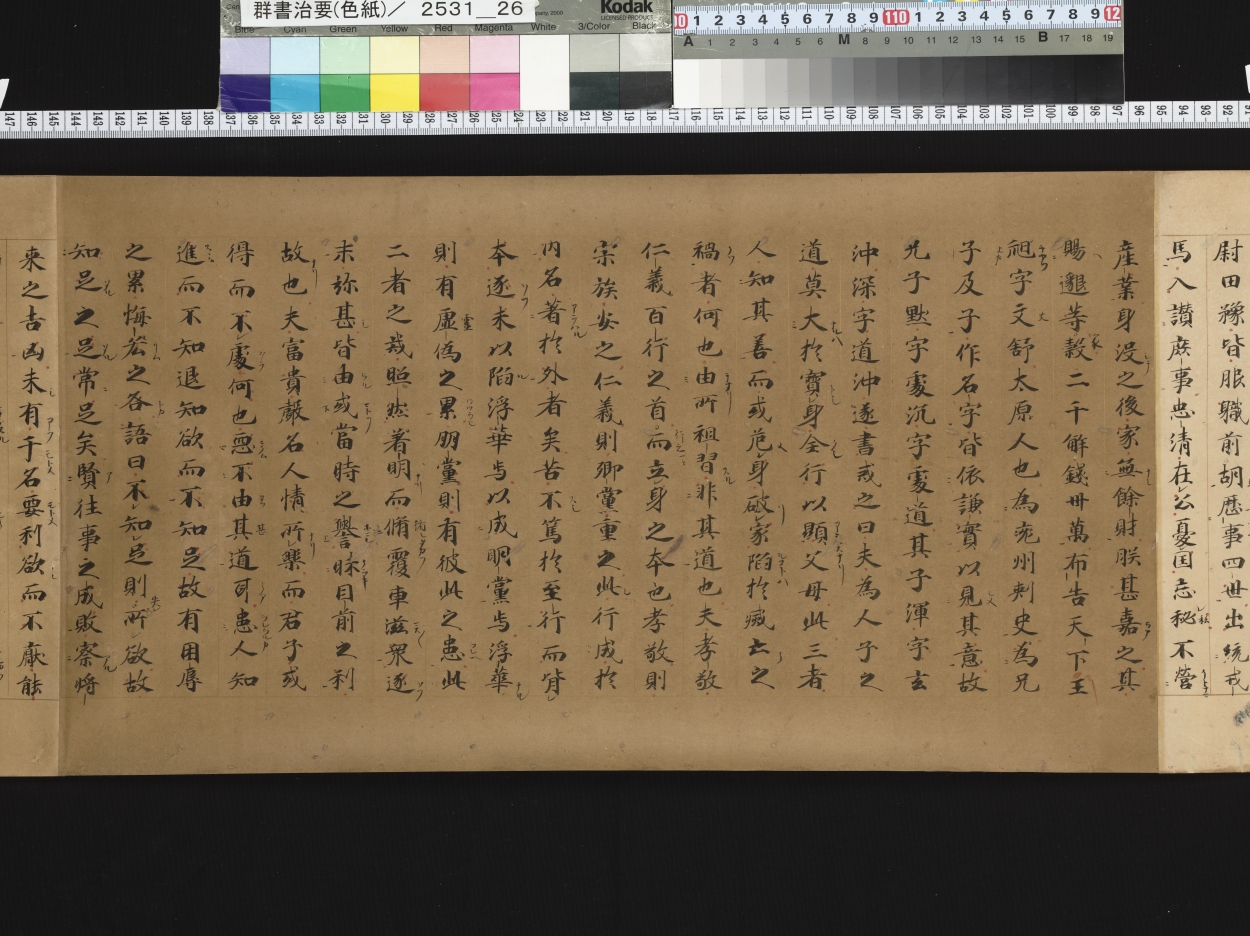 群書治要(色紙)／ 2531＿26
Kodak
LICENSED PRODUCT
Blue Cyan Green Yellow Red Magenta White 3/Color Black
尉田豫皆服職前胡歴事四世出統戎
馬入讃庶事忠清在公憂国忘秘不營
産業身没之後家無餘財朕甚嘉之其
賜邈等穀二千斛錢卅萬布告天下王
昶字文舒太原人也為兖州刺史為兄
子及子作名字皆依謙實以見其意故
兄子黙字處沉字處道其子渾字玄
沖深字道沖遂書戒之曰夫為人子之
道莫大於寶身全行以顯父母此三者
人知其善而或危身破家陷於滅亡之
禍者何也由所祖習非其道也夫孝敬
仁義百行之首而立身之本也孝敬則
宗族安之仁義則郷黨重之此行成於
内名著於外者矣若不篤於至行而背
本逐末以陷浮華焉以成朋黨焉浮華
則有虚偽之累朋黨則有彼此之患此
二者之戒照然著明而循覆車滋衆逐
末弥甚皆由或當時之譽昧目前之利
故也夫富貴聲名人情所樂而君子或
得而不處何也惡不由其道耳患人知
進而不知退知欲而不知足故有困辱
之累悔吝之咎語曰不知足則所欲故
知足之足常足矣賢往事之成敗察將
来之吉凶未有干名要利欲而不厭能